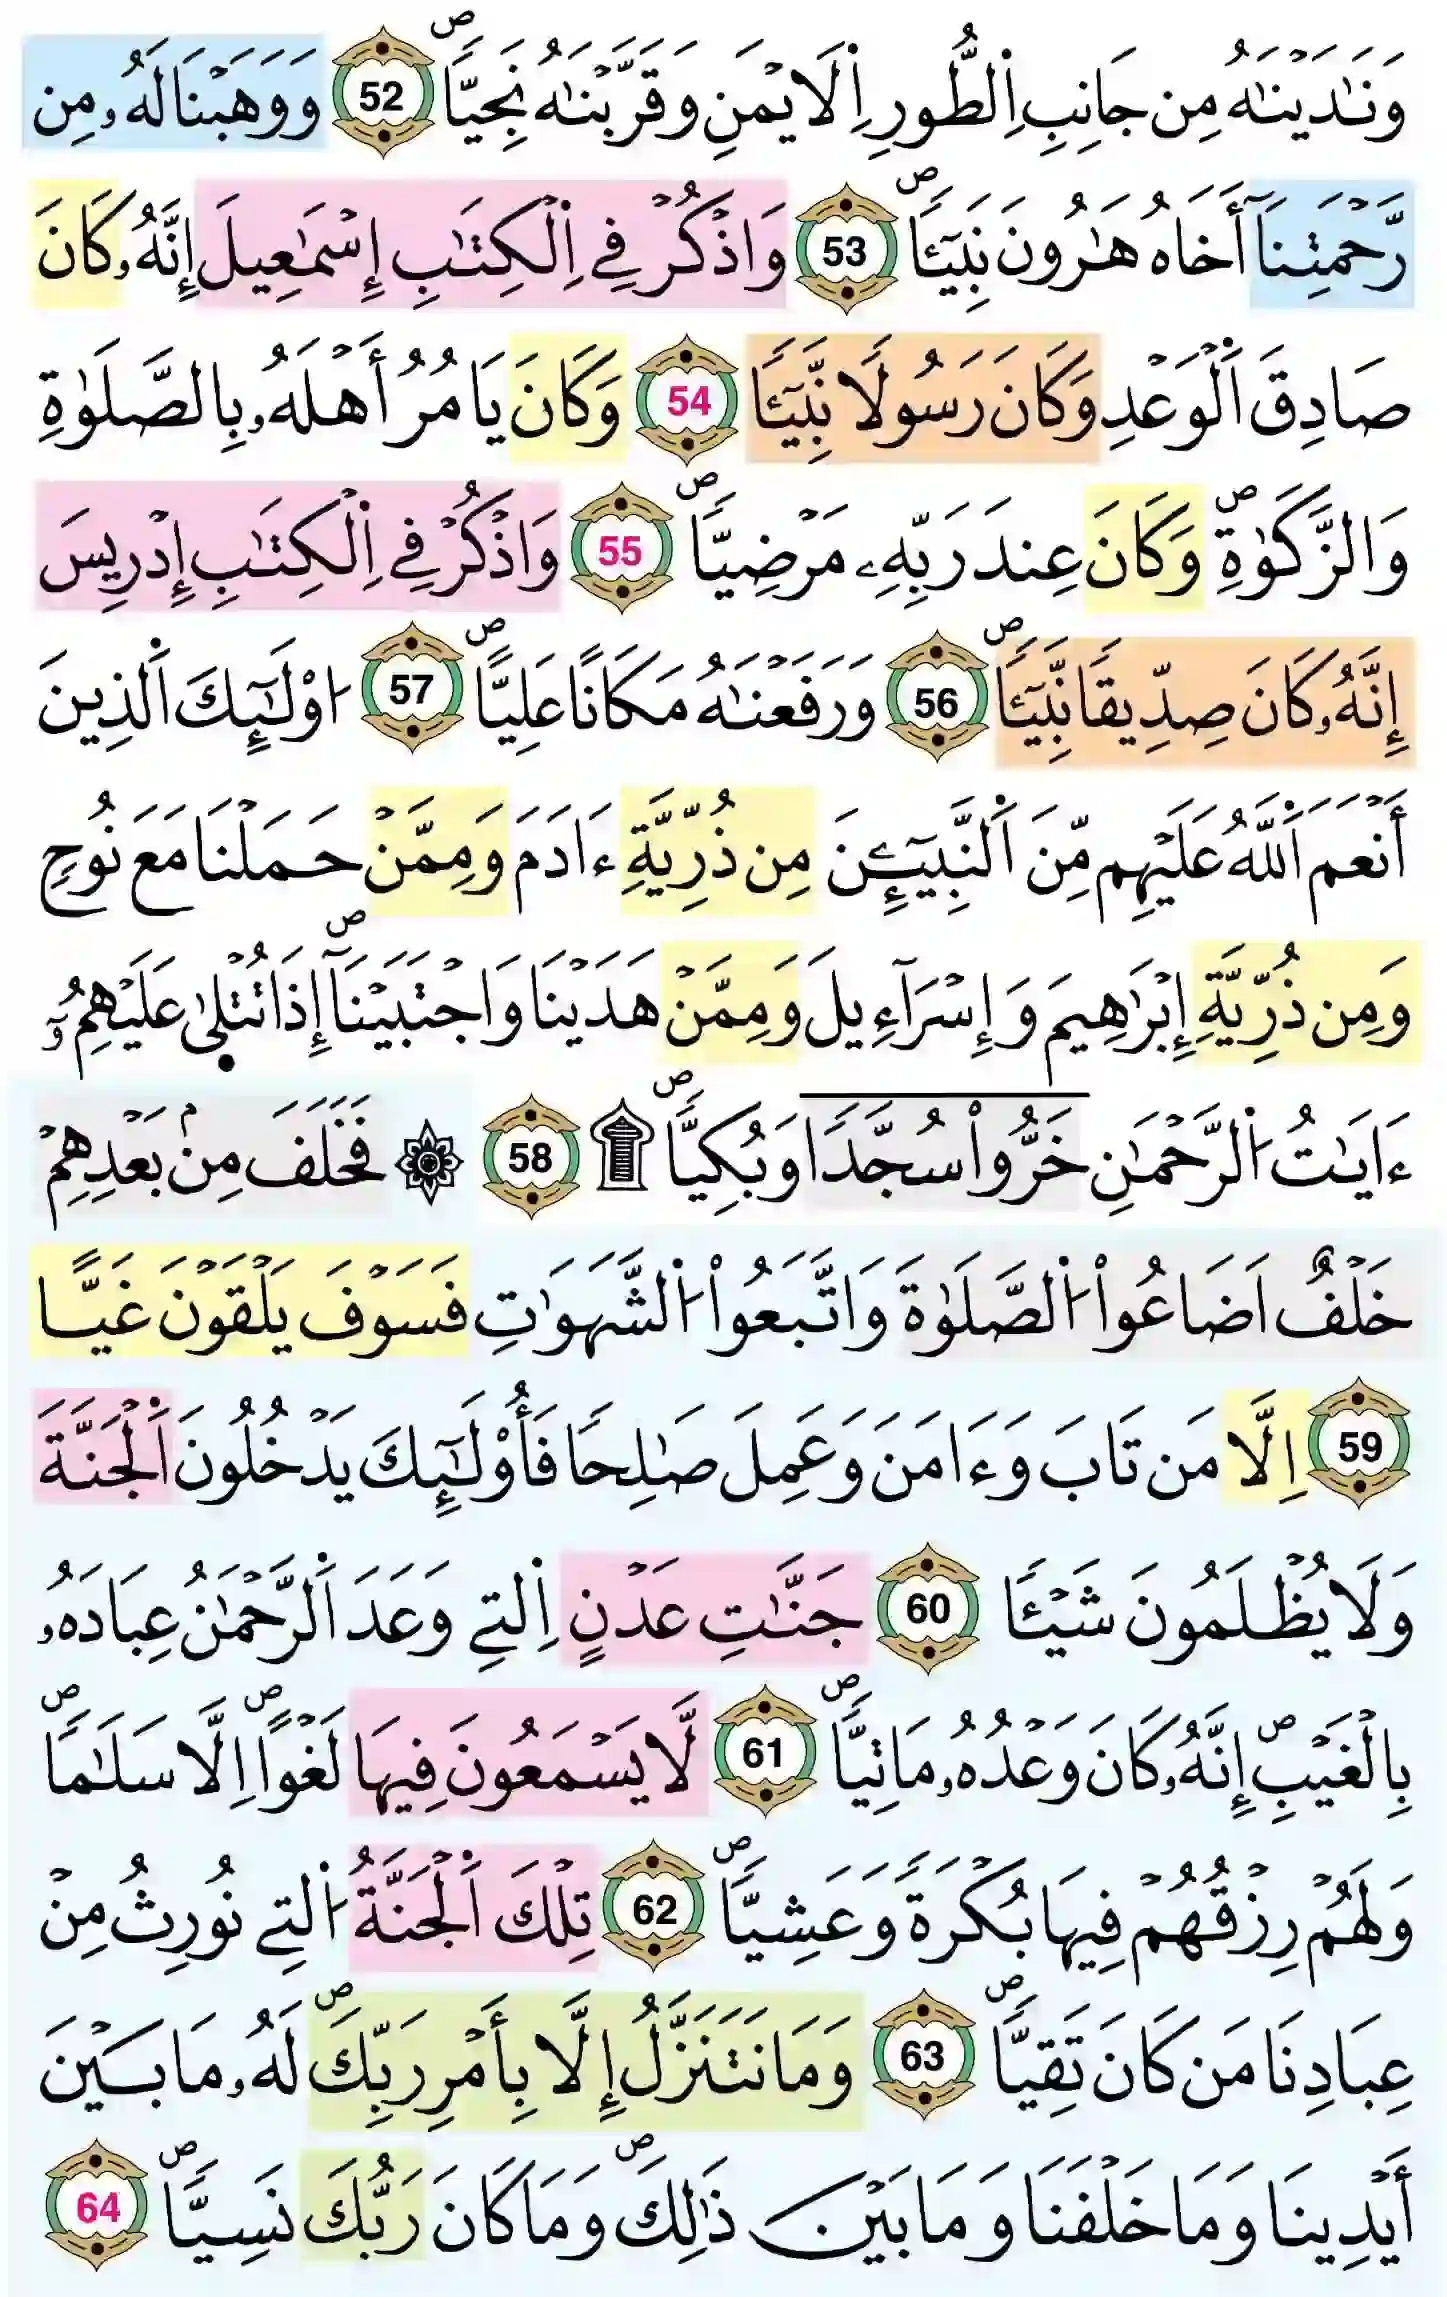 وَنَٰدَيْنَٰهُ مِن جَانِبِ اِ۬لطُّورِ اِ۬لَايْمَنِ وَقَرَّبْنَٰهُ نَجِيّاٗۖ 52 وَوَهَبْنَا لَهُۥ مِن
رَّحْمَتِنَآ أَخَاهُ هَٰرُونَ نَبِيٓـٔاٗۖ 53 وَاذْكُرْ فِے اِ۬لْكِتَٰبِ إِسْمَٰعِيلَ إِنَّهُۥ كَانَ
صَادِقَ اَ۬لْوَعْدِ وَكَانَ رَسُولاٗ نَّبِيٓـٔاٗ 54 وَكَانَ يَامُرُ أَهْلَهُۥ بِالصَّلَوٰةِ
وَالزَّكَوٰةِۖ وَكَانَ عِندَ رَبِّهِۦ مَرْضِيّاٗۖ 55 وَاذْكُرْ فِے اِ۬لْكِتَٰبِ إِدْرِيسَ
إِنَّهُۥ كَانَ صِدِّيقاٗ نَّبِيٓـٔاٗۖ 56 وَرَفَعْنَٰهُ مَكَاناً عَلِيّاًۖ 57 ا۟وْلَٰٓئِكَ اَ۬لذِينَ
أَنْعَمَ اَ۬للَّهُ عَلَيْهِم مِّنَ اَ۬لنَّبِيٓـِٕۧنَ مِن ذُرِّيَّةِ ءَادَمَ وَمِمَّنْ حَمَلْنَا مَعَ نُوحٖ
وَمِن ذُرِّيَّةِ إِبْرَٰهِيمَ وَإِسْرَآءِيلَ وَمِمَّنْ هَدَيْنَا وَاجْتَبَيْنَآۖ إِذَا تُتْل۪يٰ عَلَيْهِمُۥٓ
ءَايَٰتُ اُ۬لرَّحْمَٰنِ خَرُّواْ سُجَّداٗ وَبُكِيّاٗۖ ۩ 58 ۞ فَخَلَفَ مِنۢ بَعْدِهِمْ
خَلْفٌ اَضَاعُواْ اُ۬لصَّلَوٰةَ وَاتَّبَعُواْ اُ۬لشَّهَوَٰتِ فَسَوْفَ يَلْقَوْنَ غَيّاً
59 اِلَّا مَن تَابَ وَءَامَنَ وَعَمِلَ صَٰلِحاٗ فَأُوْلَٰٓئِكَ يَدْخُلُونَ اَ۬لْجَنَّةَ
وَلَا يُظْلَمُونَ شَيْـٔاٗ 60 جَنَّٰتِ عَدْنٍ اِ۬لتِے وَعَدَ اَ۬لرَّحْمَٰنُ عِبَادَهُۥ
بِالْغَيْبِۖ إِنَّهُۥ كَانَ وَعْدُهُۥ مَاتِيّاٗۖ 61 لَّا يَسْمَعُونَ فِيهَا لَغْواًۖ اِلَّا سَلَٰماٗۖ
وَلَهُمْ رِزْقُهُمْ فِيهَا بُكْرَةٗ وَعَشِيّاٗۖ 62 تِلْكَ اَ۬لْجَنَّةُ اُ۬لتِے نُورِثُ مِنْ
عِبَادِنَا مَن كَانَ تَقِيّاٗۖ 63 وَمَا نَتَنَزَّلُ إِلَّا بِأَمْرِ رَبِّكَۖ لَهُۥ مَا بَيْنَ
أَيْدِينَا وَمَا خَلْفَنَا وَمَا بَيْنَ ذَٰلِكَۖ وَمَا كَانَ رَبُّكَ نَسِيّاٗۖ 64